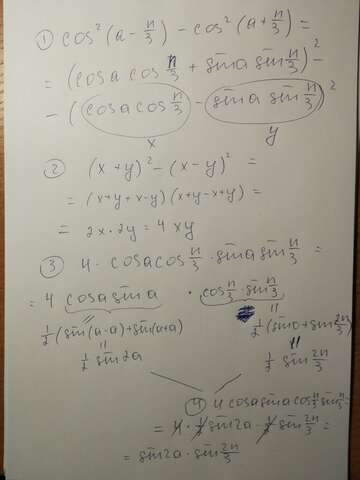 ① cos²(a - π/3) - cos²(a + π/3) =
= (cos a cos π/3 + sin a sin π/3)² -
- (cos a cos π/3 - sin a sin π/3)²
x y
② (x + y)² - (x - y)² =
= (x + y + x - y)(x + y - x + y) =
= 2x · 2y = 4xy
③ 4 · cos a cos π/3 · sin a sin π/3 =
= 4 cos a sin a · cos π/3 · sin π/3
½(sin(a-a) + sin(a+a) ½(sin 0 + sin 2π/3)
½ sin 2a ½ sin 2π/3
④ 4 cos a sin a cos π/3 sin π/3 =
= 4 · ½ sin 2a · ½ sin 2π/3 =
= sin 2a · sin 2π/3